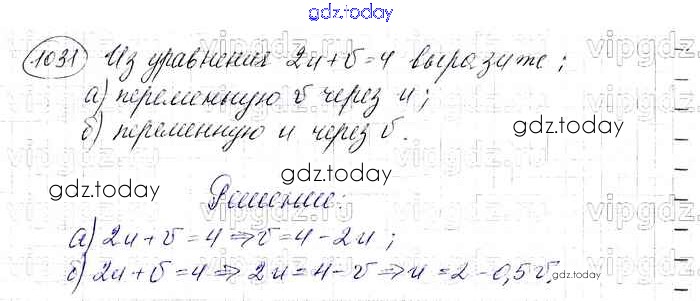 gdz.today
1031 Из уравнения 2u+v=4 выразите;
а) переменную v через u;
б) переменную u через v.
gdz.today
gdz.today
gdz.today
Решение:
а) 2u+v=4⇒v=4-2u;
б) 2u+v=4⇒2u=4-v⇒u=2-0,5v.
gdz.today